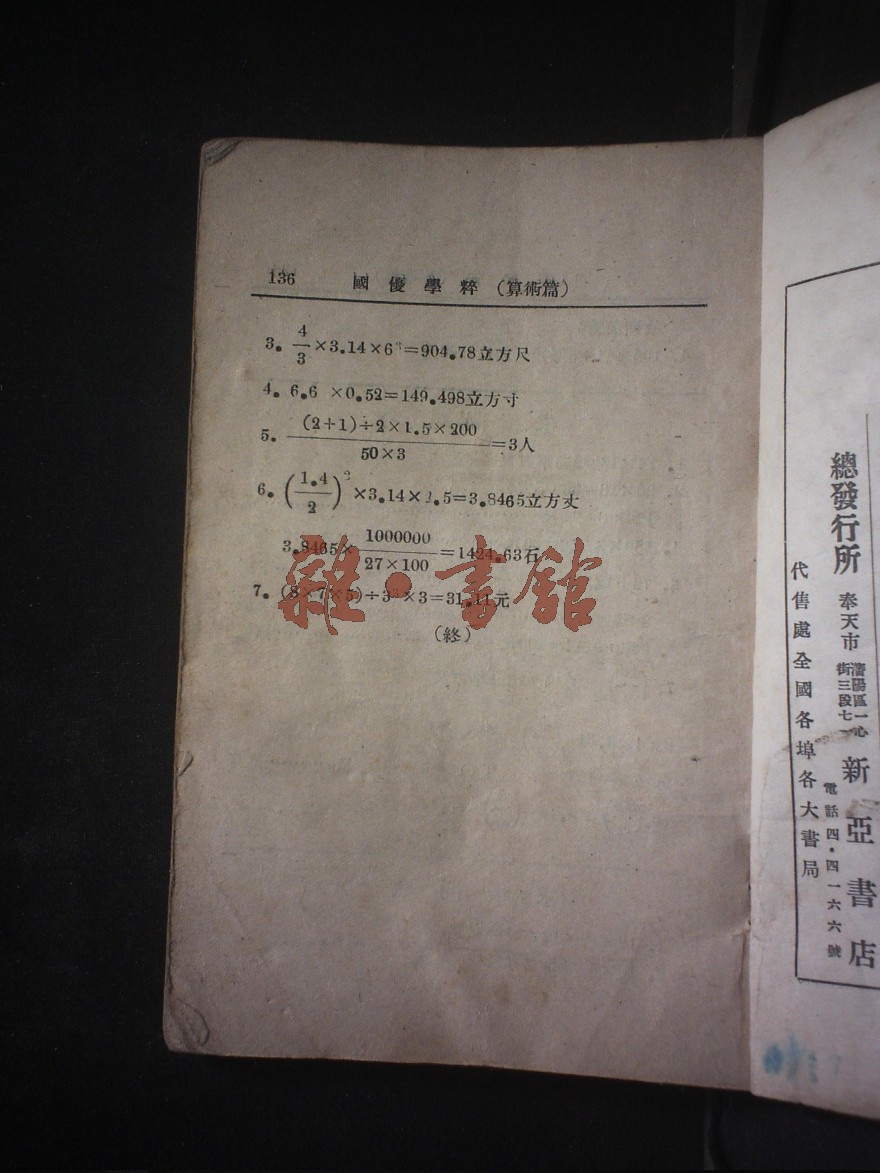 136 國優學粹(算術篇)
3. 4/3 ×3.14×6³=904.78立方尺
4. 6.6 ×0.52=149.498立方寸
5. (2+1)÷2×1.5×200 / 50×3 =3人
6. (1.4/2)² ×3.14×2.5=3.8465立方丈
3.8465× 1000000 / 27×100 =1424.63石
7. (8×7×5)÷3³×3=31.11元
(終)
雜·書館
總發行所
奉天市
瀋陽區一心
街三段七一
新亞書店
電話四·四一六六號
代售處全國各埠各大書局